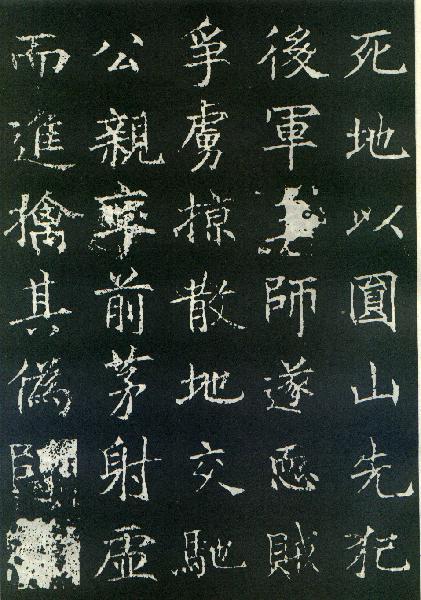 死地以圓山先犯
後軍師遂恧賊
爭虜掠散地交馳
公親率前茅射虛
而進擒其偽